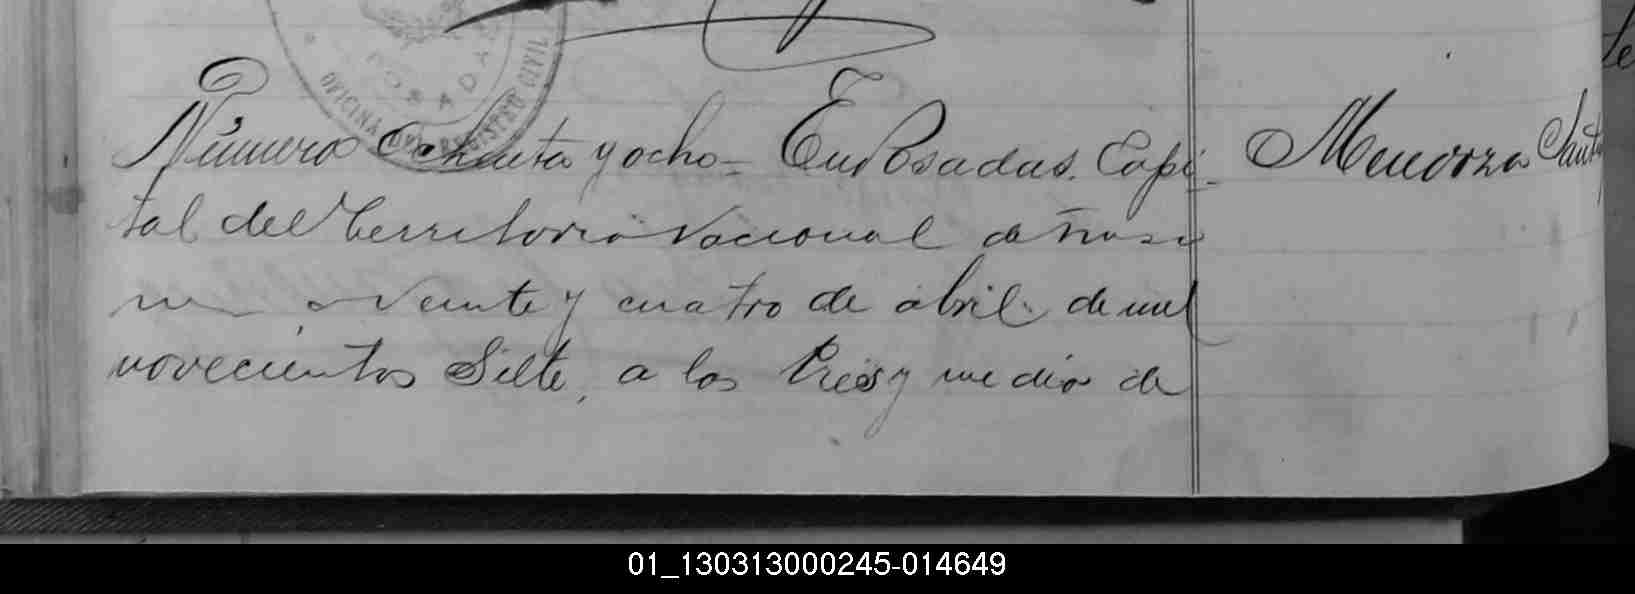 POSADAS
OFICINA DEL REGISTRO CIVIL
Número Ochenta y ocho = En Posadas. Capi- Mendoza Sant
tal del Territorio Nacional de Misio
nes, a veinte y cuatro de abril de mil
novecientos Siete, a las tres y media de
01_130313000245-014649